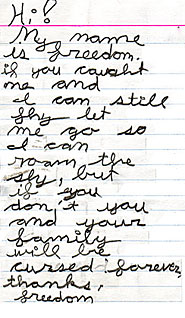 Hi!
My name
is freedom.
if you caught
me and
I can still
fly let
me go so
I can
roam the
sky, but
if you
don't you
and your
family
will be
cursed forever,
thanks,
freedom